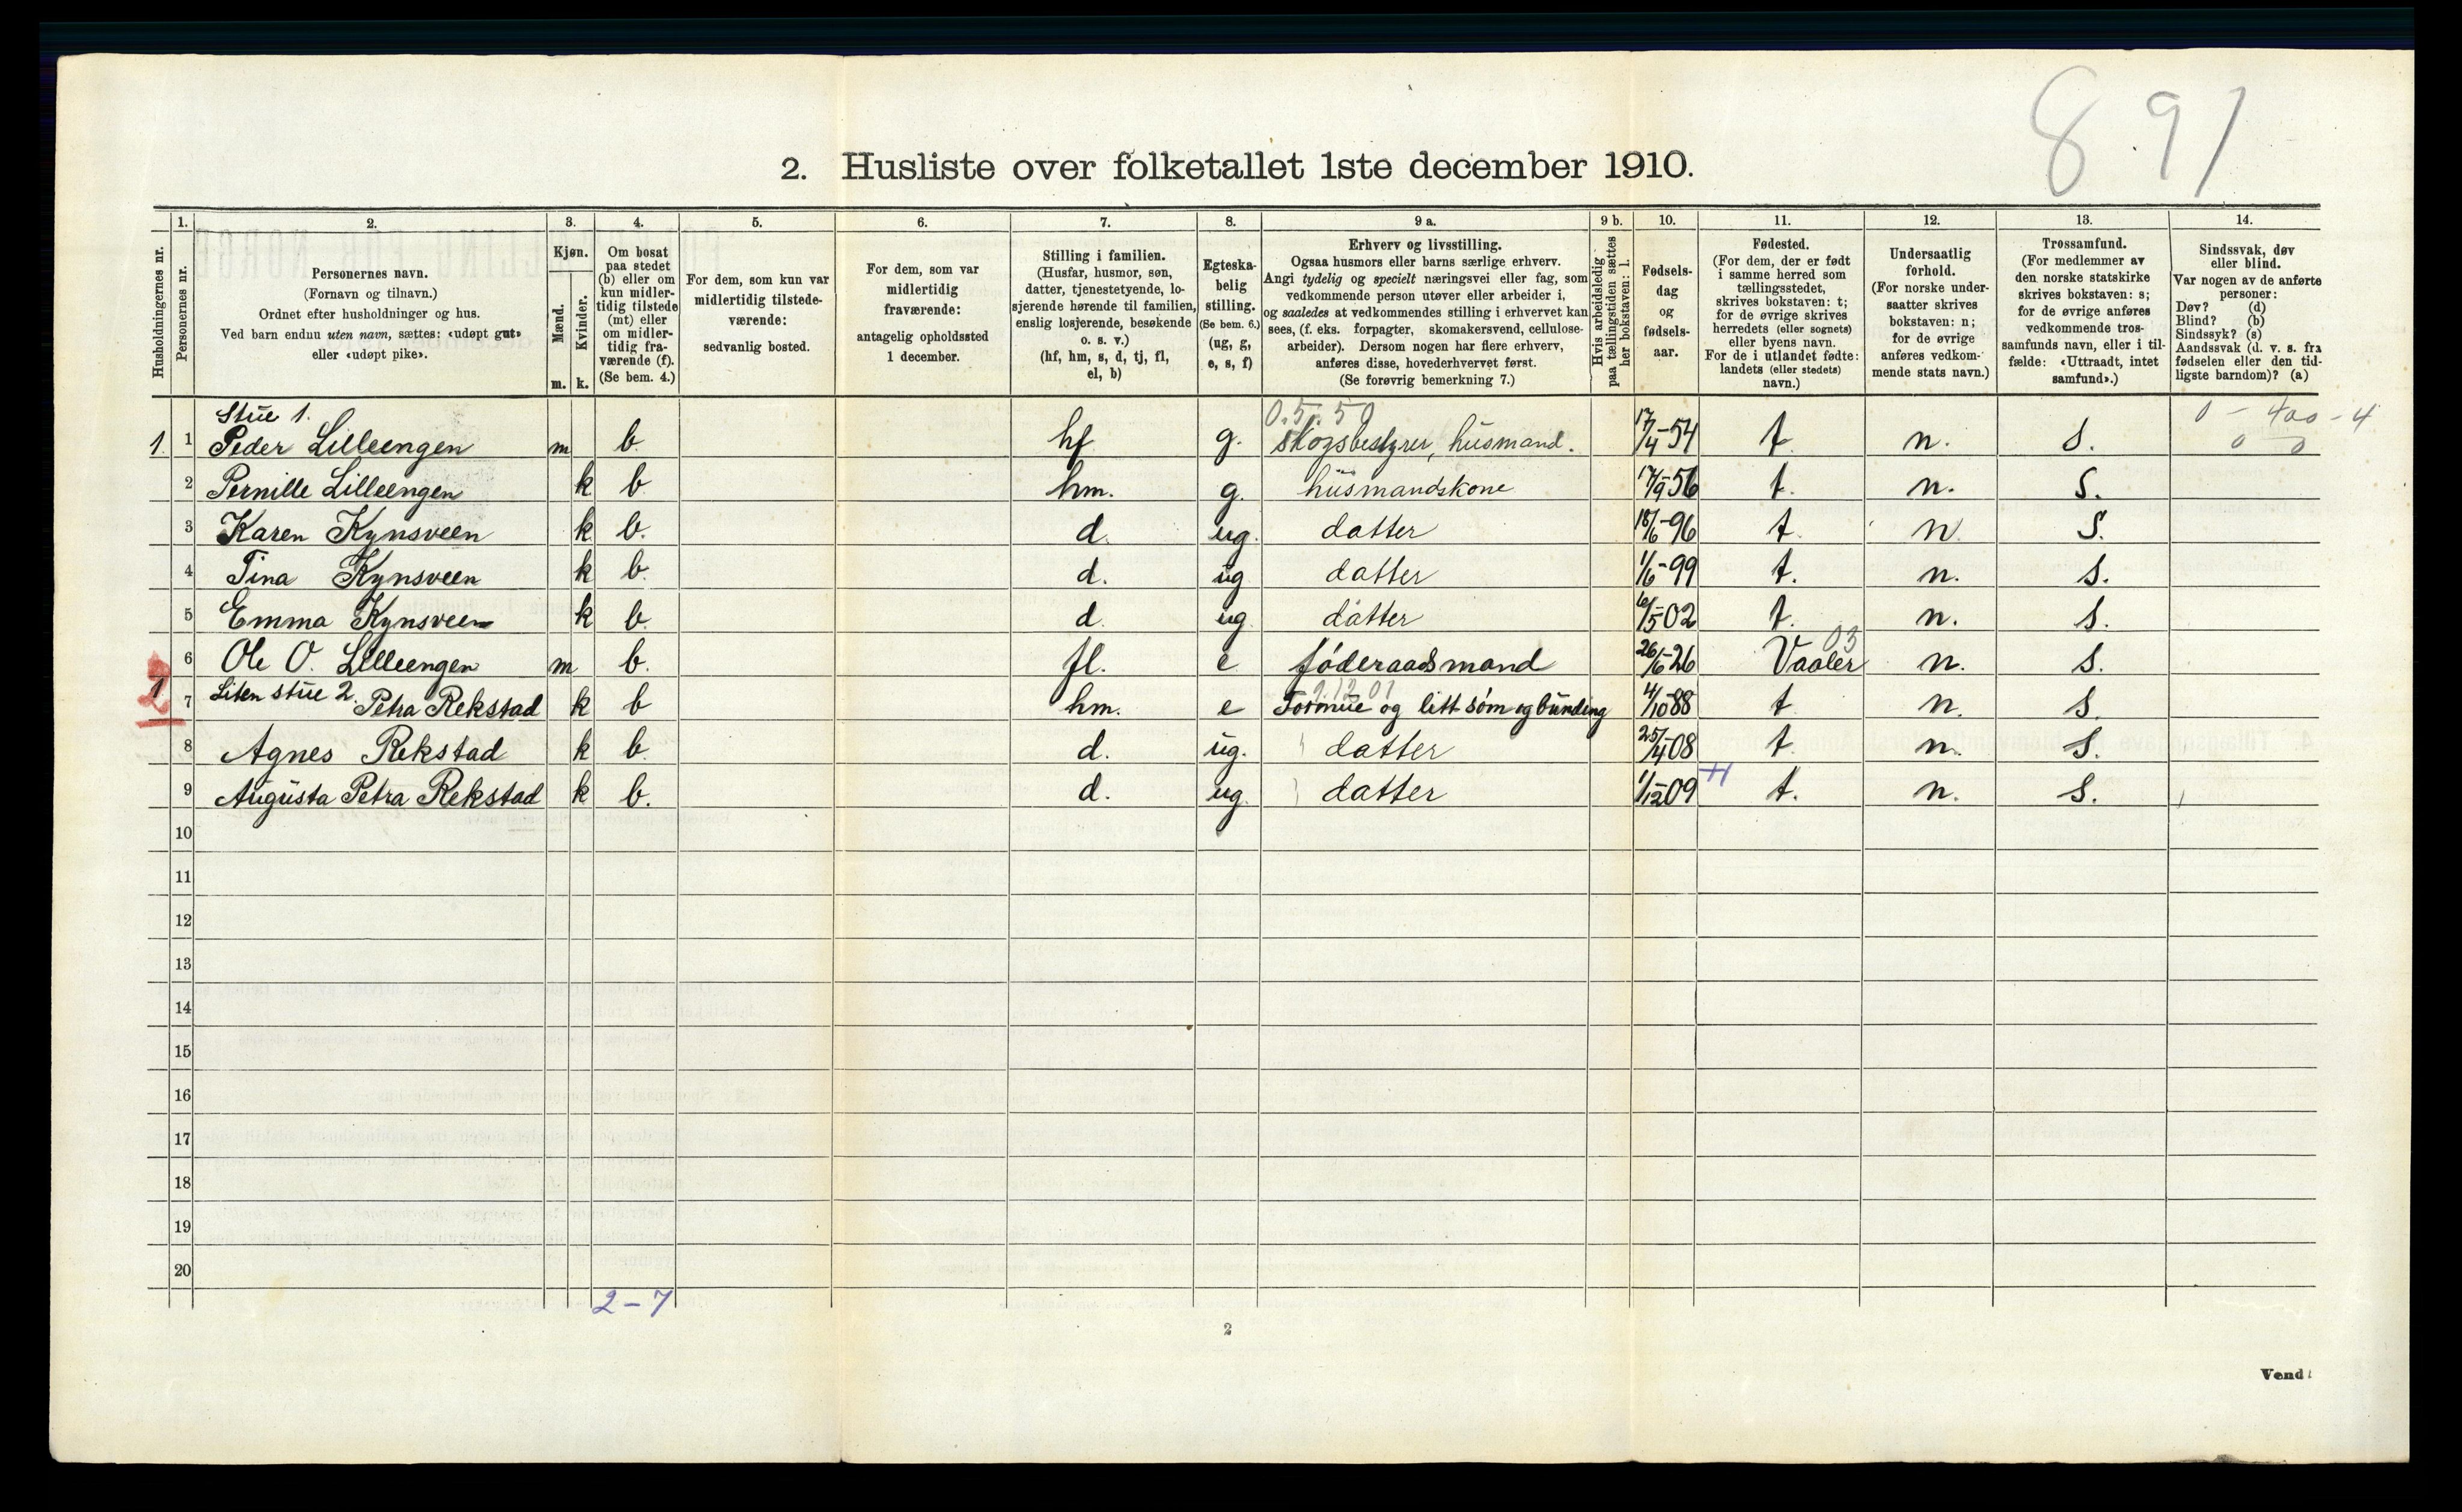 8 91
2. Husliste over folketallet 1ste december 1910.
Husholdningernes nr.
1.
Personernes nr.
2.
Personernes navn.
(Fornavn og tilnavn.)
Ordnet efter husholdninger og hus.
Ved barn endnu uten navn, sættes: «udøpt gut»
eller «udøpt pike».
3.
Kjøn.
Mænd.
Kvinder.
m. k.
4.
Om bosat
paa stedet
(b) eller om
kun midler-
tidig tilstede
(mt) eller
om midler-
tidig fra-
værende (f).
(Se bem. 4.)
5.
For dem, som kun var
midlertidig tilstede-
værende:
sedvanlig bosted.
6.
For dem, som var
midlertidig
fraværende:
antagelig opholdssted
1 december.
7.
Stilling i familien.
(Husfar, husmor, søn,
datter, tjenestetyende, lo-
sjerende hørende til familien,
enslig losjerende, besøkende
o. s. v.)
(hf, hm, s, d, tj, fl,
el, b)
8.
Egteska-
belig
stilling.
(Se bem. 6.)
(ug, g,
e, s, f)
9 a.
Erhverv og livsstilling.
Ogsaa husmors eller barns særlige erhverv.
Angi tydelig og specielt næringsvei eller fag, som
vedkommende person utøver eller arbeider i,
og saaledes at vedkommendes stilling i erhvervet kan
sees, (f. eks. forpagter, skomakersvend, cellulose-
arbeider). Dersom nogen har flere erhverv,
anføres disse, hovederhvervet først.
(Se forøvrig bemerkning 7.)
9 b.
Hvis arbeidsledig
paa tællingstiden sættes
her bokstaven: l.
10.
Fødsels-
dag
og
fødsels-
aar.
11.
Fødested.
(For dem, der er født
i samme herred som
tællingsstedet,
skrives bokstaven: t;
for de øvrige skrives
herredets (eller sognets)
eller byens navn.
For de i utlandet fødte:
landets (eller stedets)
navn.)
12.
Undersaatlig
forhold.
(For norske under-
saatter skrives
bokstaven: n;
for de øvrige
anføres vedkom-
mende stats navn.)
13.
Trossamfund.
(For medlemmer av
den norske statskirke
skrives bokstaven: s;
for de øvrige anføres
vedkommende tros-
samfunds navn, eller i til-
fælde: «Uttraadt, intet
samfund».)
14.
Sindssvak, døv
eller blind.
Var nogen av de anførte
personer:
Døv? (d)
Blind? (b)
Sindssyk? (s)
Aandssvak (d. v. s. fra
fødselen eller den tid-
ligste barndom)? (a)
Stue 1. 0.5.50 0 - 400 - 4
1. 1 Peder Lilleengen m b. hf g. skogsbestyrer, husmand. 17/4-54 t. n. s. 0 0
2 Pernille Lilleengen k b hm. g. husmandskone 17/9-56 t. n. S.
3 Karen Kynsveen k b. d. ug. datter 18/6-96 t. n. S.
4 Tina Kynsveen k b. d. ug datter 1/6-99 t. n. s.
5 Emma Kynsveen k b. d. ug. datter 6/5-02 t. n. s.
6 Ole O. Lilleengen m b. fl. e føderaadsmand 26/6-26 Vaaler 03 n. s.
2 1 Liten stue 2. 9.12.01
7 Petra Rekstad k b hm. e Formue og litt søm og bunding 4/10-88 t n. s.
8 Agnes Rekstad k b. d. ug. datter 25/4-08 t. n. s.
9 Augusta Petra Rekstad k b. d. ug. datter 1/12-09 t. n. s.
10
11
12
13
14
15
16
17
18
19
20
2 - 7
2
Vend!